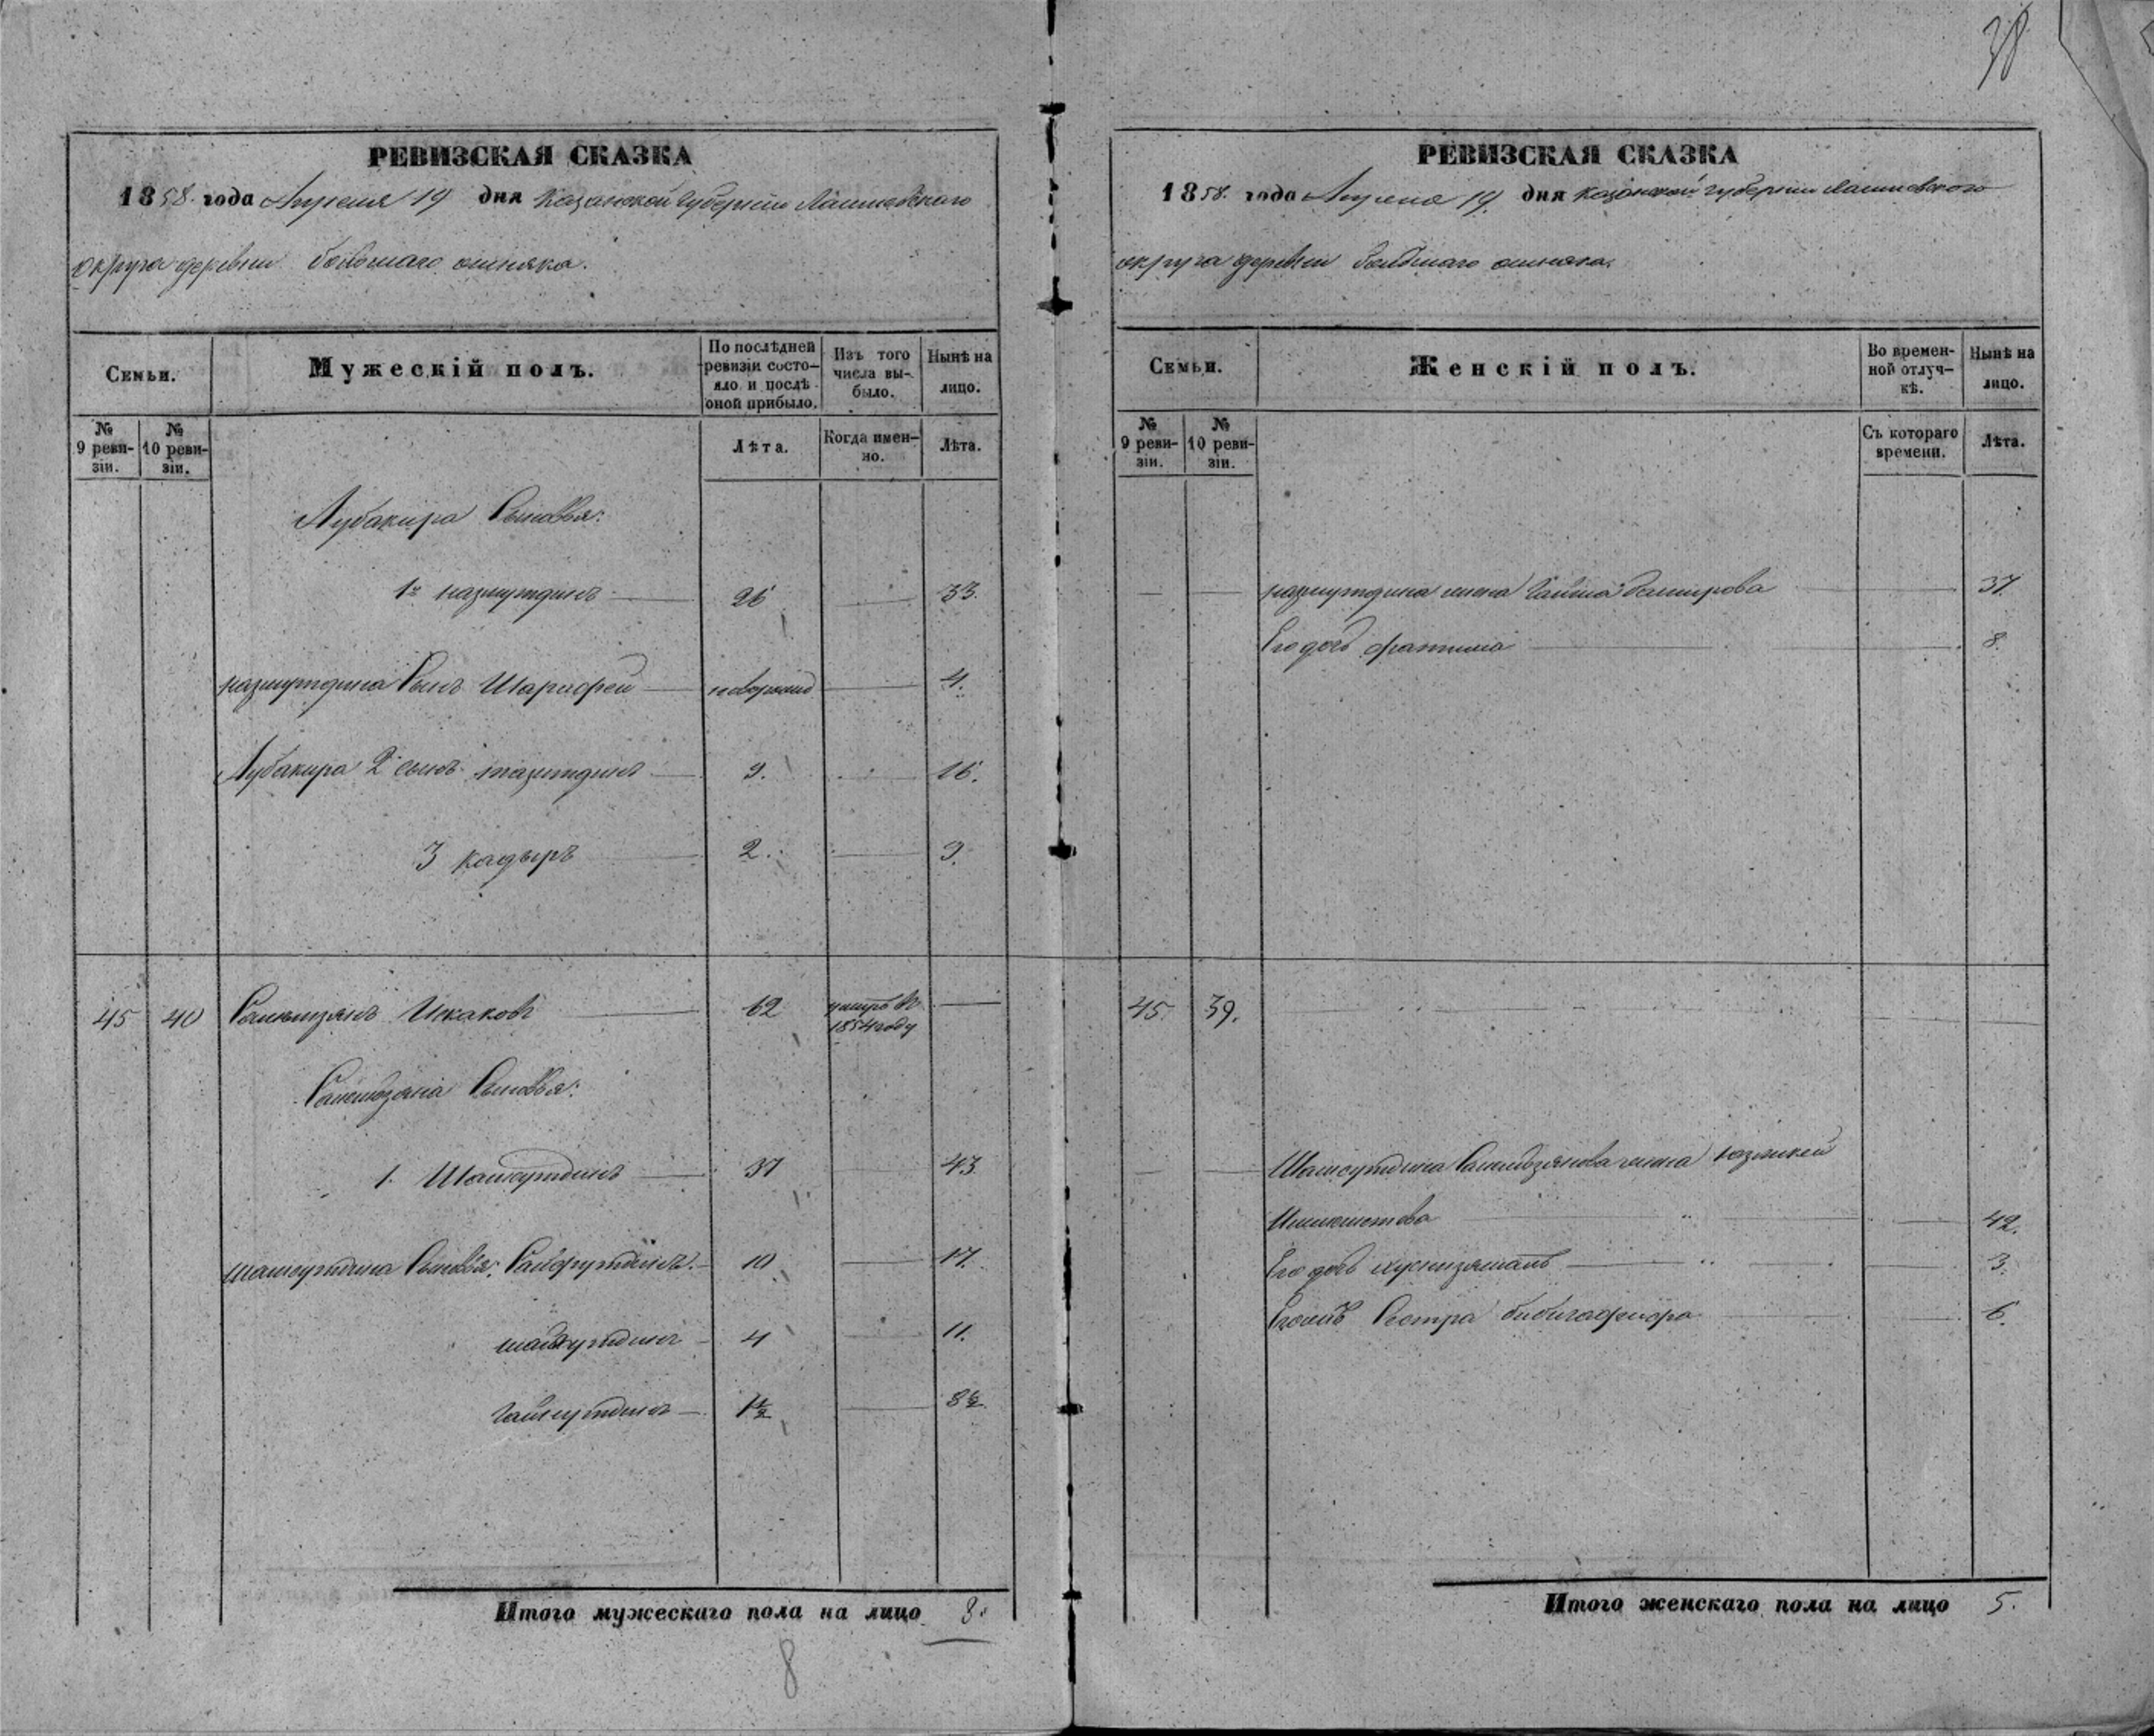 38
РЕВИЗСКАЯ СКАЗКА
1858. года Апреля 19 дня Казанской Губернии Лаишевскаго
округа деревни большаго ошняка.
Семьи.
Мужескій полъ.
По послѣдней ревизіи состояло и послѣ оной прибыло.
Изъ того числа выбыло.
Нынѣ на лицо.
№ 9 ревизіи.
№ 10 ревизіи.
Лѣта.
Когда именно.
Лѣта.
Аубакира Сыновья:
1й назмутдинъ 26 33.
назмутдина Сынъ Шарафей новорожд 4.
Аубакира 2й сынъ тазитдинъ 9. 16.
3 кадыръ 2. 9.
45 40 Исхаковъ 62 умеръ въ 1854 году
Сыновья:
1. Шамсутдинъ 37 43
шамсутдина Сыновья: Сайфутдинъ. 10 17.
4 11.
1½ 8½
Итого мужескаго пола на лицо 8.
8
РЕВИЗСКАЯ СКАЗКА
1858. года Апреля 19. дня Казанской губернии Лаишевского
округа деревни большаго ошняка.
Семьи.
Женскій полъ.
Во временной отлучкѣ.
Нынѣ на лицо.
№ 9 ревизіи.
№ 10 ревизіи.
Съ котораго времени.
Лѣта.
назмутдина жена Гайша баширова 37.
Его дочь фатима 8.
45. 39.
Шамсутдина жена
42.
Его дочь хуснизямалъ 3.
Сестра 6.
Итого женскаго пола на лицо 5.